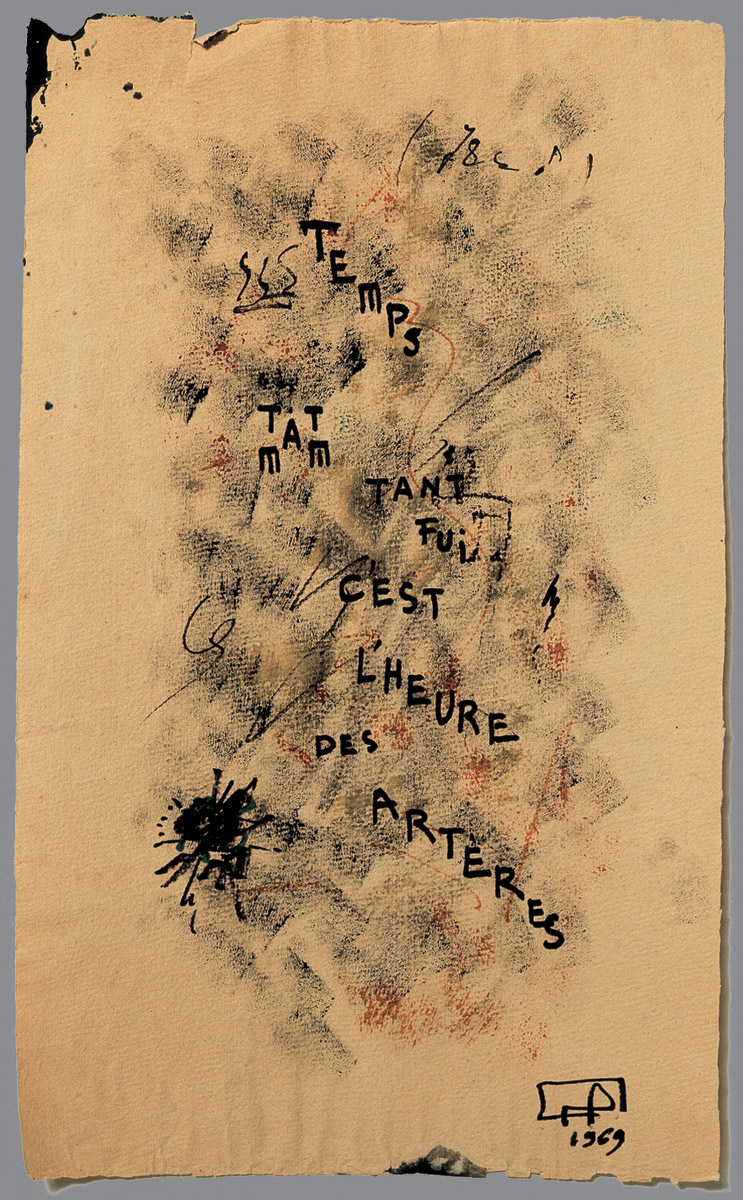 TEMPS
TÀT
MM
TANT
FUI
C'EST
L'HEURE
DES
ARTÈRES
1969